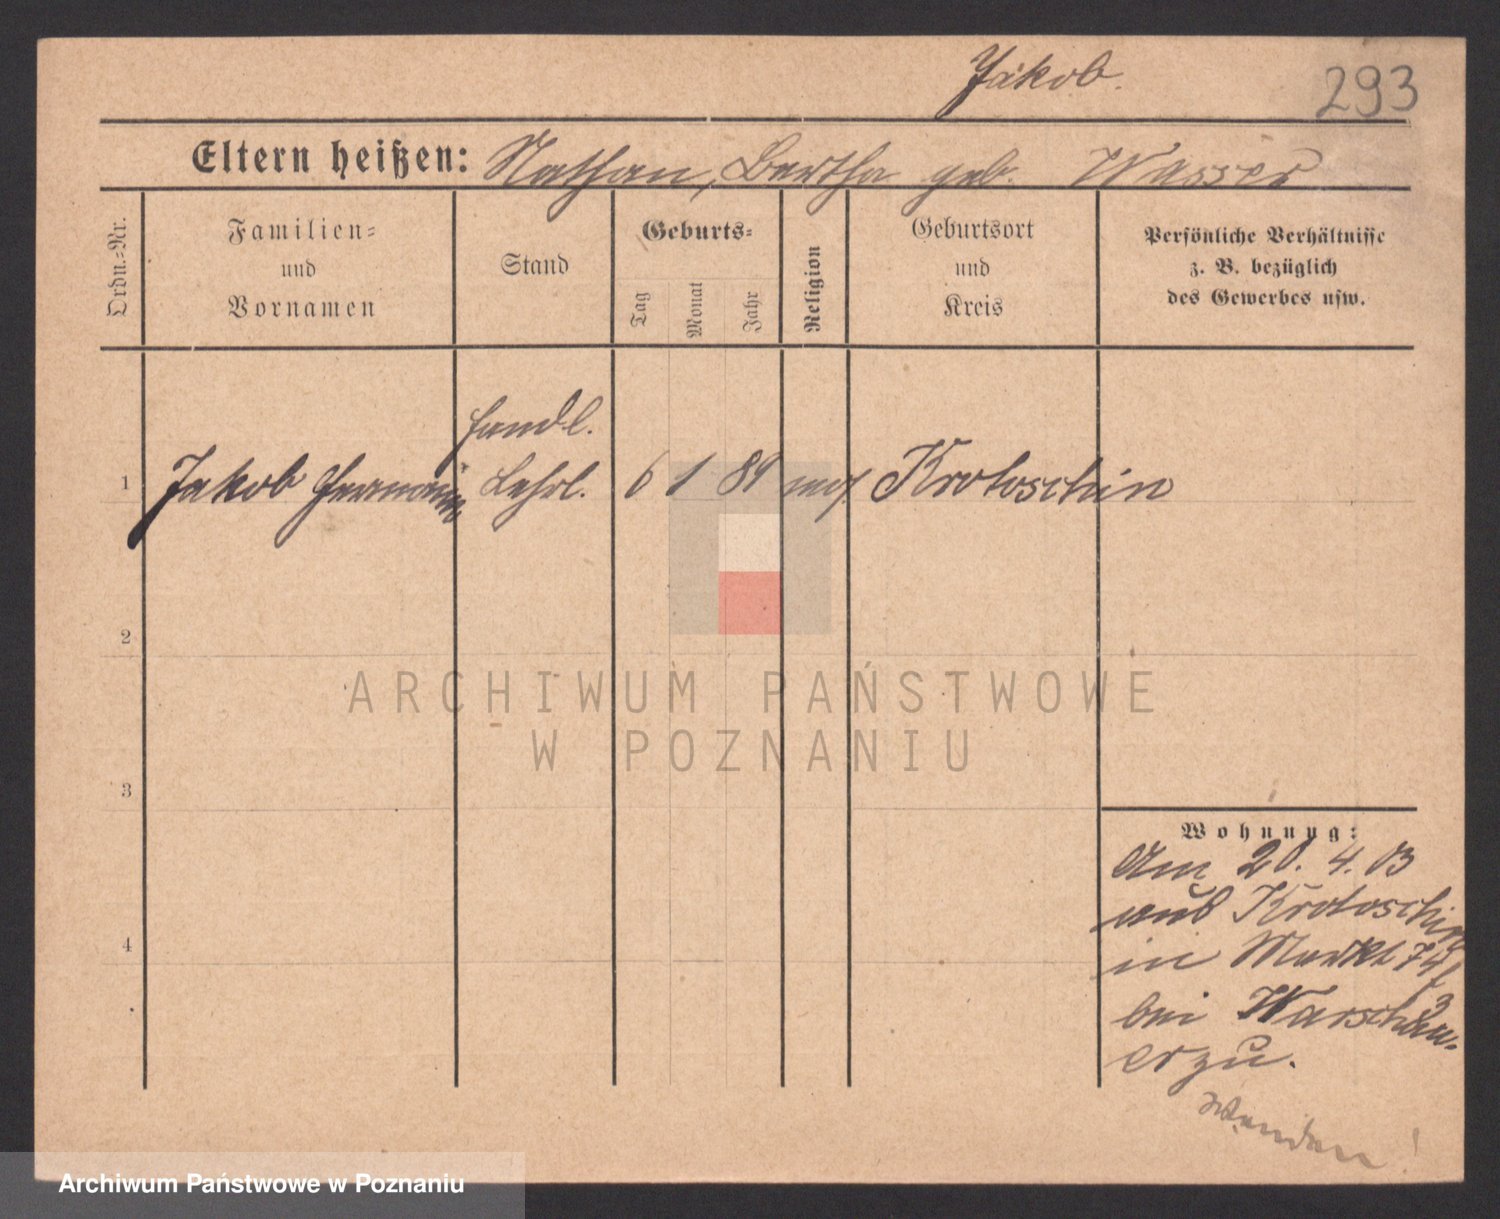 Jakob.
293
Eltern heißen: Nathan, Bertha geb. Wasser
Ordn.-Nr.
Familien-
und
Vornamen
Stand
Geburts-
Tag
Monat
Jahr
Religion
Geburtsort
und
Kreis
Persönliche Verhältnisse
z. B. bezüglich
des Gewerbes usw.
Handl.
1 Jakob Hermann Lehrl. 6 1 89 mos. Krotoschin
2
ARCHIWUM PAŃSTWOWE
W POZNANIU
3
Wohnung:
Am 20. 4. 03
aus Krotoschin
in Markt 74
bei Warschau-
er zu.
4
Wenden!
Archiwum Państwowe w Poznaniu